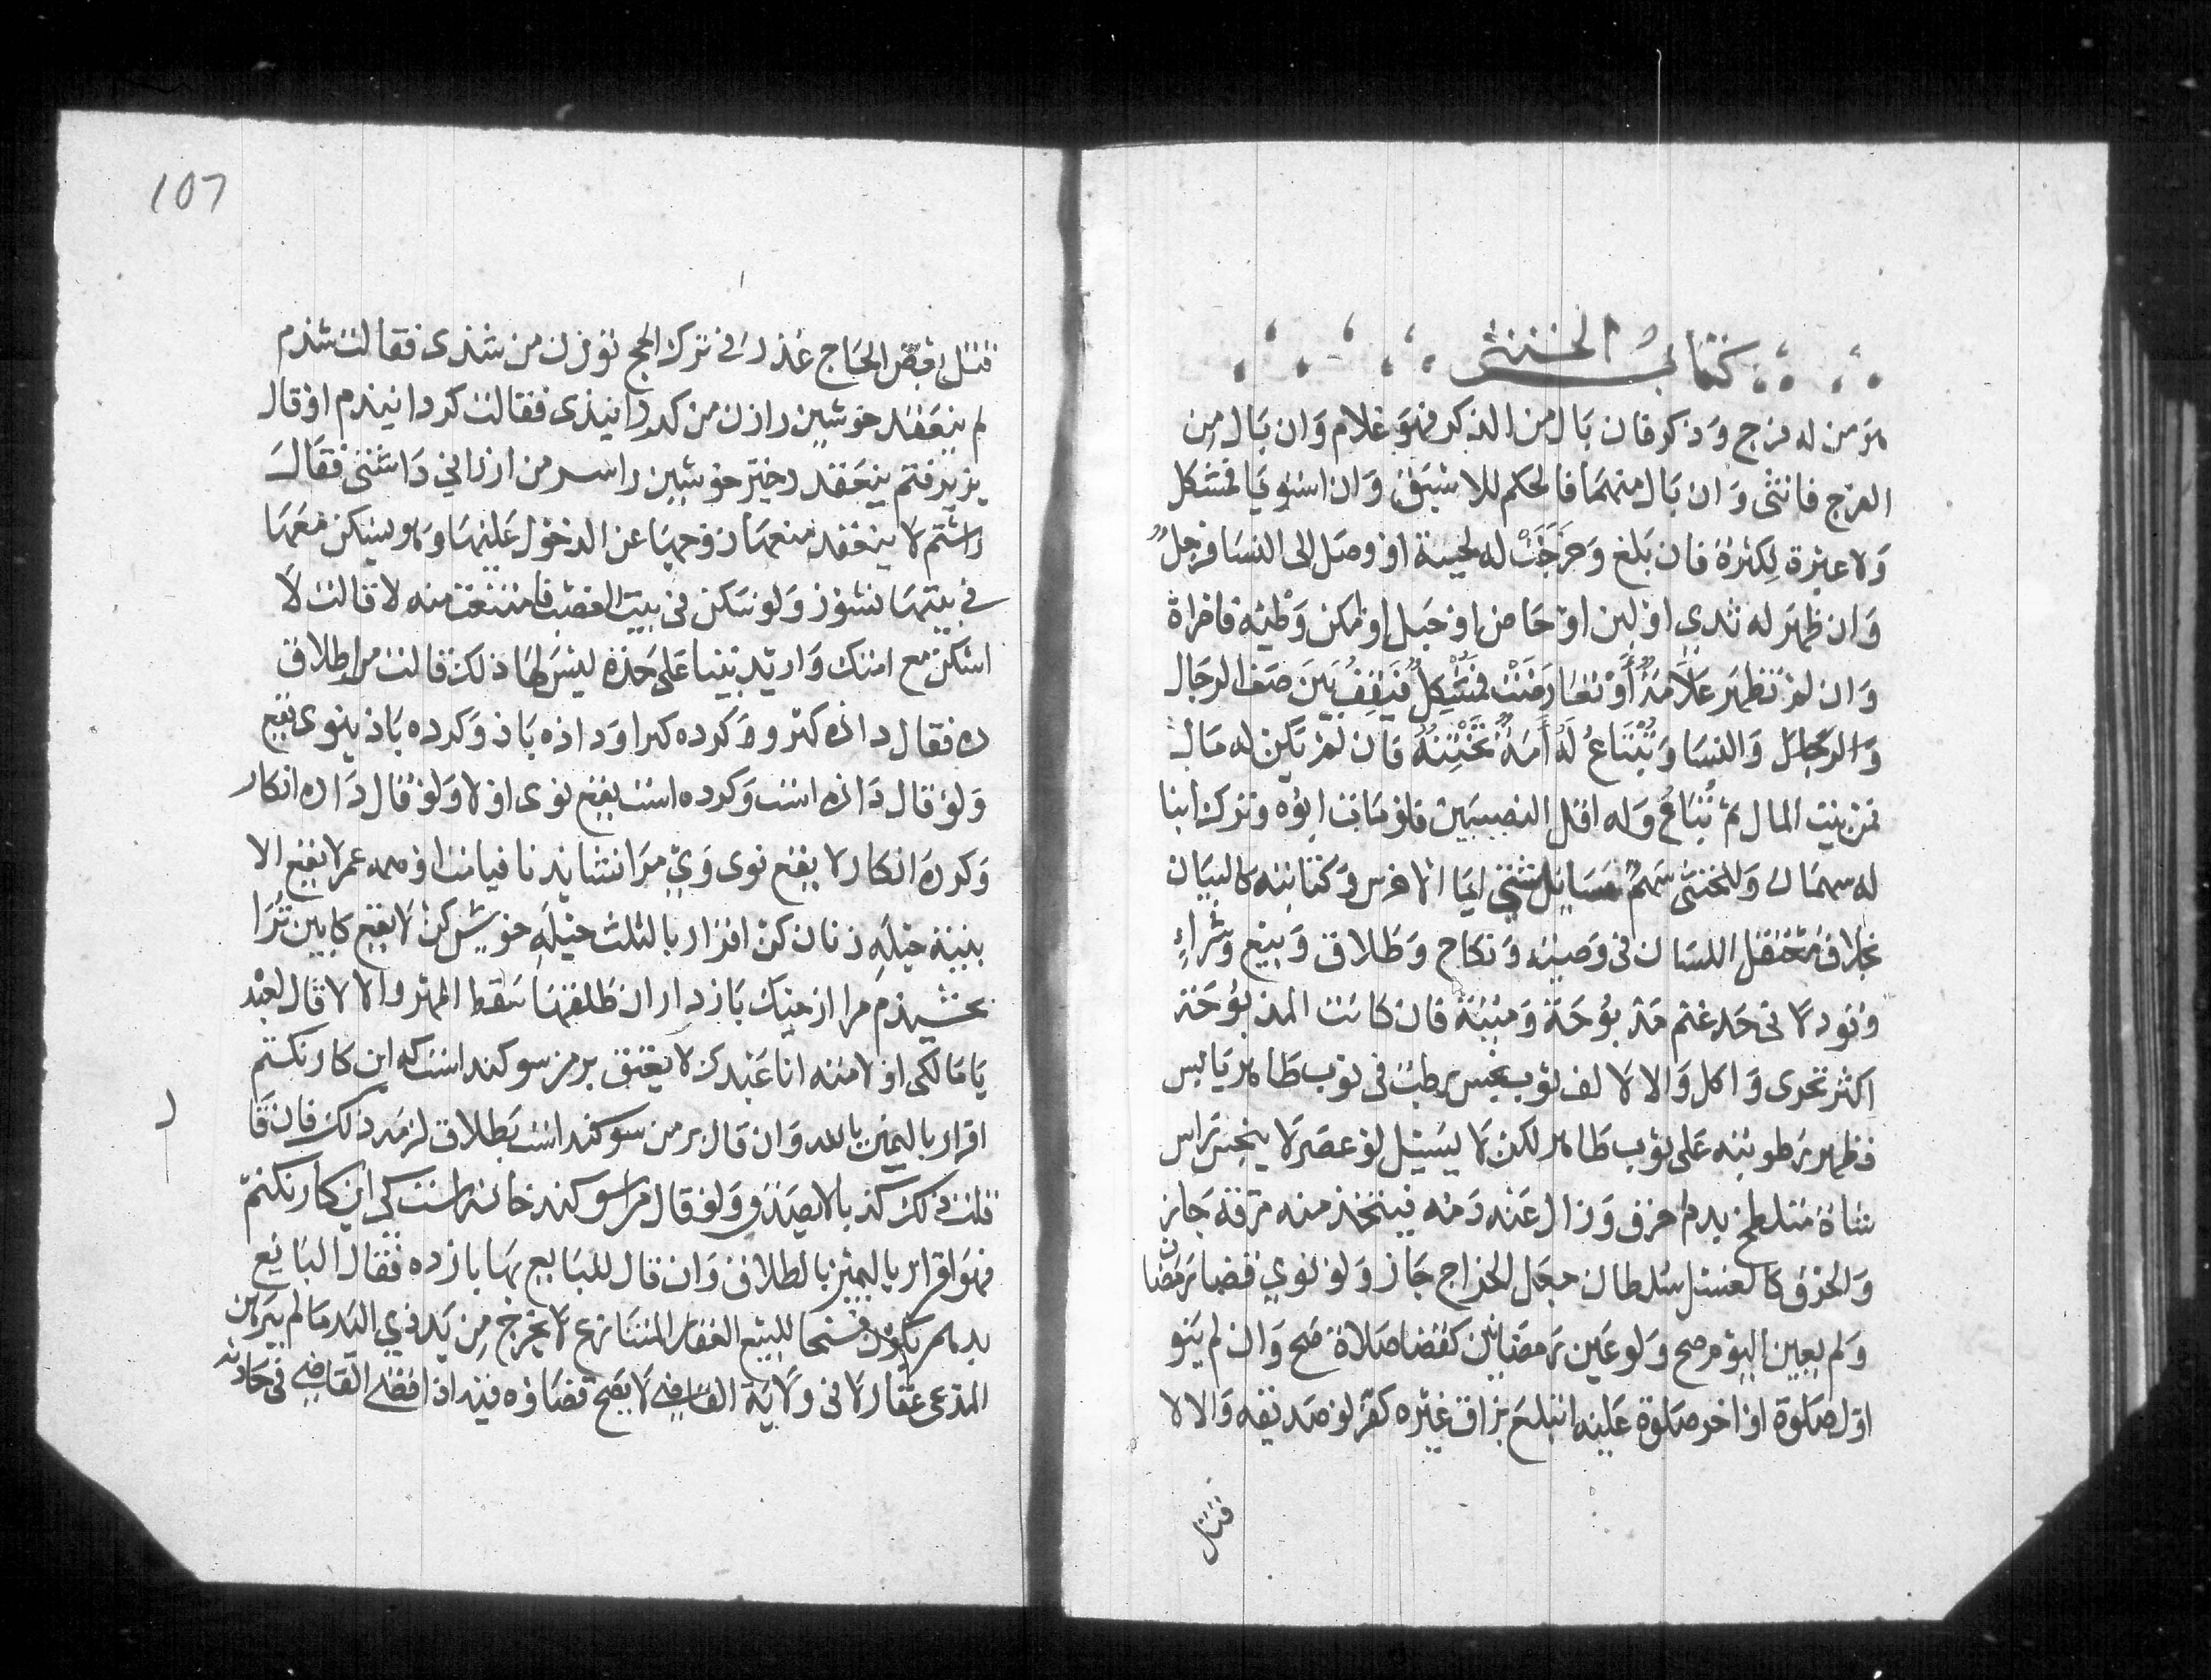 كتاب الخنثى
هو من له فرج وذكر فان بال من الذكر فهو غلام وان بال من
الفرج فانثى وان بال منهما فالحكم للاسبق وان استويا فمشكل
ولا عبرة لكثرة فان بلغ وخرجت له لحية او وصل الى النسا فرجل
وان ظهر له ثدي او لبن او حاض او حبل او امكن وطئه فامراة
وان لم تظهر علامة أو تعارضت فمشكل فيقف بين صف الرجال
والنسا وتبتاع له أمة تختنه فان لم يكن له مال
فمن بيت المال ثم تباع وله اقل النصيبين فلو مات ابوه وترك ابنا
له سهمان وللخنثى سهم مسايل شتى ايما الاخرس وكتابته كالبيان
بخلاف معتقل اللسان في وصية ونكاح وطلاق وبيع وشراء
وقود لا في حد غنم مذبوحة وميتة فان كانت المذبوحة
اكثر تحرى واكل والا لا لف ثوب نجس رطب في ثوب طاهر يابس
فظهر رطوبته على ثوب طاهر لكن لا يسيل لو عصر لا ينجس راس
شاة متلطخ بدم احرق وزال عنه دمه فيتخذ منه مرقة جاز
والحرق كالغسل سلطان جعل الخراج جاز ولو نوى قضا رمضان
ولم يعين اليوم صح ولو عين رمضانين كقضا صلاة صح وان لم ينو
اول صلوة او اخر صلوة عليه ابتلع بزاق غيره كفر لو صديقه والا لا
قتل
107
قتل بعض الحاج عذر في ترك الحج تو زن من شدى فقالت شدم
لم ينعقد خويشتن را زن من كردانيدى فقالت كردانيدم او قال
پذيرفتم ينعقد دختر خويشتن را بپسر من ارزاني داشتى فقال
داشتم لا ينعقد منعها زوجها عن الدخول عليها وهو يسكن معها
في بيتها نشوز ولو سكن في بيت الغصب فامتنعت منه لا قالت لا
اسكن مع امتك واريد بيتا على حدة ليس لها ذلك قالت مرا طلاق
ده فقال داده كير وكرده كير او داده باذ وكرده باذ ينوى يقع
ولو قال داده است وكرده است يقع نوى او لا ولو قال داده انكار
وكرده انكار لا يقع نوى وي مرا نشايد تا قيامت او همه عمر لا يقع الا
بنية حيله زنان كن اقرار بالثلث حيله خويش كن لا يقع كابين ترا
بخشيدم مرا از چنك باز دار ان طلقها سقط المهر والا لا قال لعبده
يا مالكي او لامته انا عبدك لا يعتق بر من سوكند است كه اين كار نكنم
اقرار باليمين بالله وان قال بر من سوكند است بطلاق لزمه ذلك فان قا
قلت ذلك كذبا لا يصدق ولو قال مرا سوكند خانه است كى اين كار نكنم
فهو اقرار باليمين بالطلاق وان قال للبايع بها باز ده فقال البايع
بدهم يكون فسخا للبيع العقار المتنازع لا يخرج من يد ذي اليد ما لم يبرهن
المدعي عقار لا في ولاية القاضي لا يصح قضاؤه فيه اذا قضى القاضي في حادثة